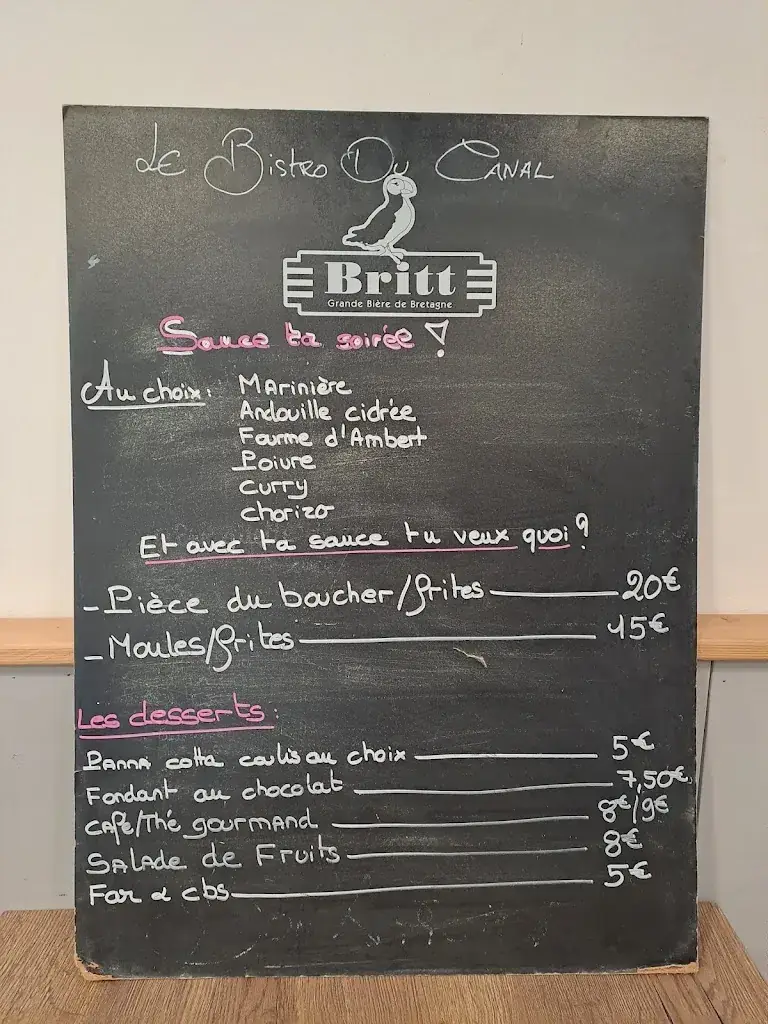 Le Bistro Du Canal
Britt
Grande Bière de Bretagne
Sauce ta soirée !
Au choix : Marinière
Andouille cidrée
Fourme d'Ambert
Poivre
Curry
Chorizo
Et avec ta sauce tu veux quoi ?
- Pièce du boucher/frites 20€
- Moules/frites 15€
Les desserts :
Panna cotta coulis au choix 5€
Fondant au chocolat 7,50€
Café/Thé gourmand 8€/9€
Salade de Fruits 8€
Far & cbs 5€